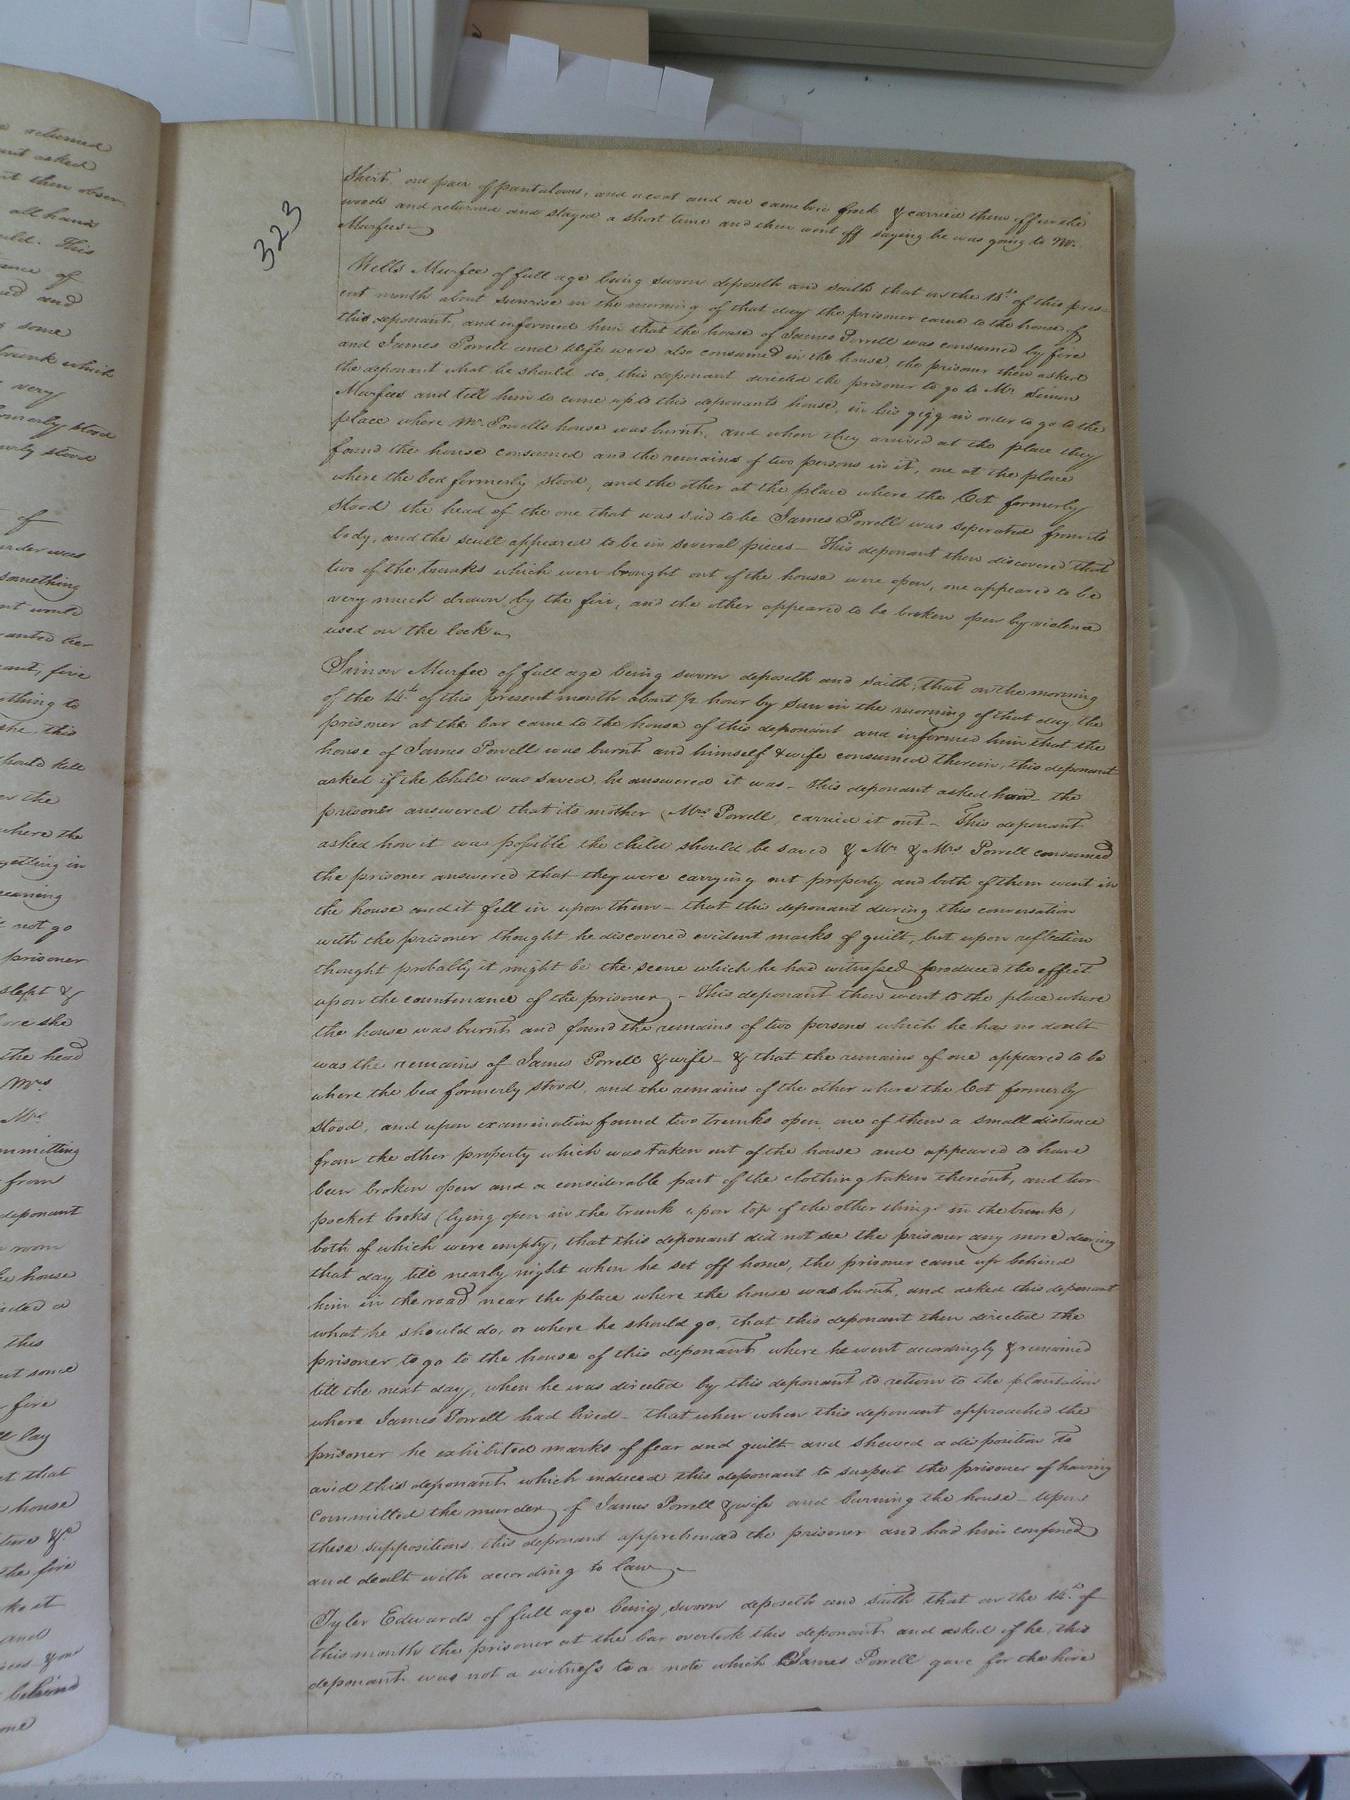 323
Shirt, one pair of pantaloons, and a coat and one frock & carried them off in the
woods and returned and stayed a short time and then went off saying he was going to Mr.
Murfees
Wells Murfee of full age being sworn deposeth and saith that on the 14th of this pres-
ent month about sunrise in the morning of that day the prisoner came to the house of
this deponant, and informed him that the house of James Powell was consumed by fire
and James Powell and Wife were also consumed in the house, the prisoner then asked
the deponant what he should do, this deponant directed the prisoner to go to Mr Simon
Murfees and tell him to come up to this deponants house, in his gigg in order to go to the
place where Mr. Powells house was burnt, and when they arrived at the place they
found the house consumed and the remains of two persons in it, one at the place
where the bed formerly stood, and the other at the place where the Cot formerly
stood the head of the one that was said to be James Powell was seperated from its
body, and the scull appeared to be in several pieces - This deponant then discovered that
two of the trunks which were brought out of the house were open, one appeared to be
very much drawn by the fire, and the other appeared to be broken open by violence
used on the lock
Simon Murfee of full age being sworn deposeth and saith, that on the morning
of the 14th of this present month about ½ hour by Sun in the morning of that day the
prisoner at the bar came to the house of this deponant and informed him that the
house of James Powell was burnt and himself & wife consumed therein, this deponant
asked if the Child was saved, he answered it was - This deponant asked how the
prisoner answered that its mother (Mrs Powell, carried it out - This deponant
asked how it was possible the child should be saved & Mr & Mrs Powell consumed
the prisoner answered that they were carrying out property and both of them went in
the house and it fell in upon them - that this deponant during this conversation
with the prisoner thought he discovered evident marks of guilt, but upon reflection
thought probably it might be the scene which he had witnessed produced the effect
upon the countenance of the prisoner - This deponant then went to the place where
the house was burnt and found the remains of two persons which he has no doubt
was the remains of James Powell & wife - & that the remains of one appeared to be
where the bed formerly stood, and the remains of the other where the Cot formerly
stood, and upon examination found two trunks open, one of them a small distance
from the other property which was taken out of the house and appeared to have
been broken open and a considerable part of the clothing taken thereout, and two
pocket books (lying open in the trunk upon top of the other things in the trunk)
both of which were empty, that this deponant did not see the prisoner any more during
that day till nearly night when he set off home, the prisoner came up behind
him in the road near the place where the house was burnt, and asked this deponant
what he should do, or where he should go, that this deponant then directed the
prisoner to go to the house of this deponant where he went accordingly & remained
till the next day, when he was directed by this deponant to return to the plantation
where James Powell had lived - that when when this deponant approached the
prisoner he exhibited marks of fear and guilt and shewed a disposition to
avoid this deponant which induced this deponant to suspect the prisoner of having
Committed the murder of James Powell & wife and burning the house - Upon
these suppositions this deponant apprehended the prisoner and had him confined
and dealt with according to law -
Tyler Edwards of full age being sworn deposeth and saith that on the 14th of
this month the prisoner at the bar overtook this deponant and asked if he, this
deponant was not a witness to a note which James Powell gave for the hire